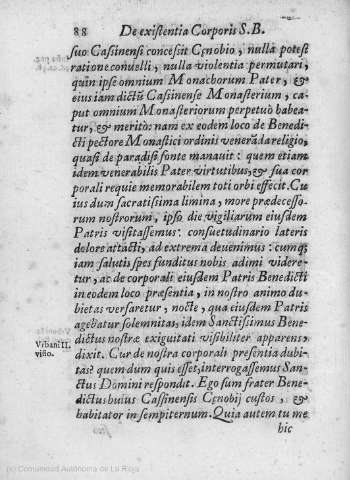 88 De existentia Corporis S.B.
suo Cassinensi concessit Cęnobio, nulla potest
ratione conuelli, nulla violentia permutari,
quin ipse omnium Monachorum Pater, &
eius iam dictũ Cassinense Monasterium, ca-
put omnium Monasteriorum perpetuò habea-
tur, & meritò: nam ex eodem loco de Benedi-
cti pectore Monastici ordinis venerãda religio,
quasi de paradisi fonte manauit: quem etiam
idem venerabilis Pater virtutibus, & sua cor-
porali requie memorabilem toti orbi effecit. Cu
ius dum sacratissima limina, more prædecesso-
rum nostrorum, ipso die vigiliarum eiusdem
Patris visitassemus: consuetudinario lateris
dolore attacti, ad extrema deuenimus: cumq;
iam salutis spes funditus nobis adimi videre-
tur, ac de corporali eiusdem Patris Benedicti
in eodem loco præsentia, in nostro animo du-
bietas versaretur, nocte, qua eiusdem Patris
agebatur solemnitas, idem Sanctissimus Bene-
dictus nostræ exiguitati visibiliter apparens,
Vrbani II.
visio.
dixit. Cur de nostra corporali presentia dubi-
tas? quem dum quis esset, interrogassemus San-
ctus Domini respondit. Ego sum frater Bene-
dictus huius Cassinensis Cęnobij custos, &
habitator in sempiternum. Quia autem tu me
hic
(c) Comunidad Autónoma de La Rioja